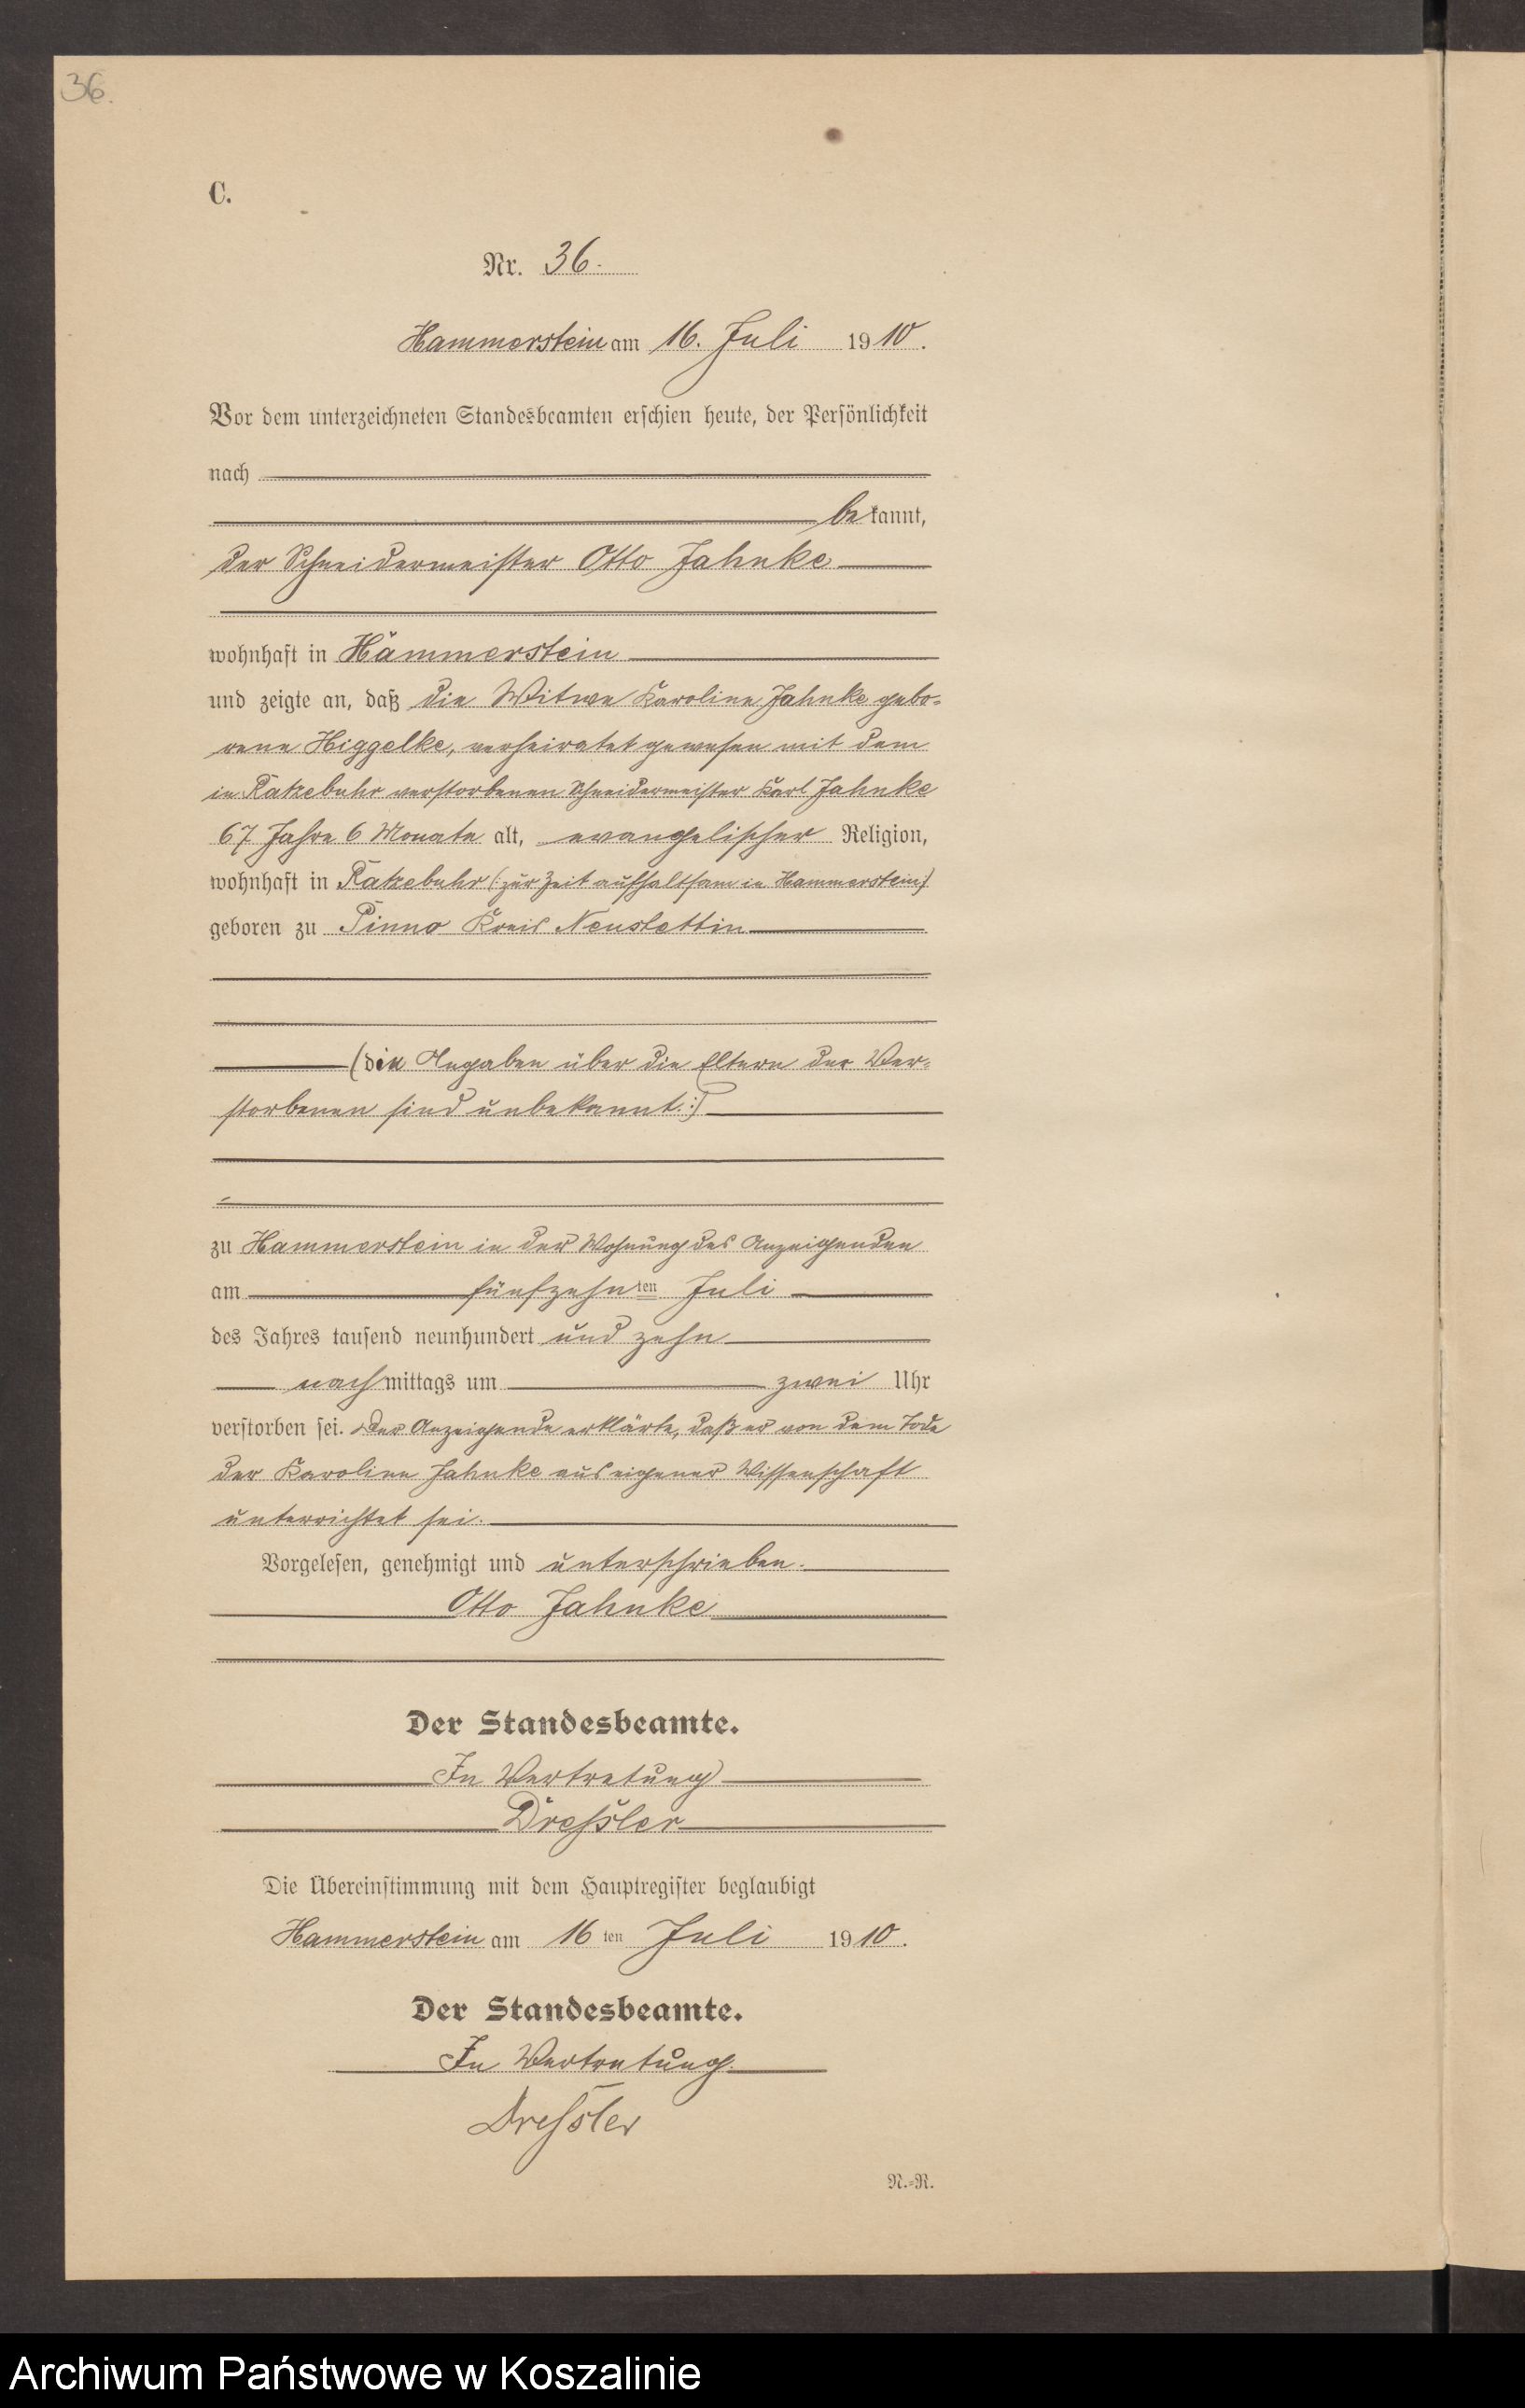 36.
C.
Nr. 36.
Hammerstein am 16. Juli 1910.
Vor dem unterzeichneten Standesbeamten erschien heute, der Persönlichkeit
nach
bekannt,
der Schneidermeister Otto Jahnke
wohnhaft in Hammerstein
und zeigte an, daß die Witwe Karoline Jahnke gebo-
rene Higgelke, verheiratet gewesen mit dem
in Ratzebuhr verstorbenen Schneidermeister Karl Jahnke
67 Jahre 6 Monate alt, evangelischer Religion,
wohnhaft in Ratzebuhr (: zur Zeit aufhaltsam in Hammerstein :)
geboren zu Pinno Kreis Neustettin
(die Angaben über die Eltern der Ver-
storbenen sind unbekannt :)
zu Hammerstein in der Wohnung des Anzeigenden
am fünfzehnten Juli
des Jahres tausend neunhundert und zehn
nachmittags um zwei Uhr
verstorben sei. Der Anzeigende erklärte, daß er von dem Tode
der Karoline Jahnke aus eigener Wissenschaft
unterrichtet sei.
Vorgelesen, genehmigt und unterschrieben.
Otto Jahnke
Der Standesbeamte.
In Vertretung
Dressler
Die Übereinstimmung mit dem Hauptregister beglaubigt
Hammerstein am 16ten Juli 1910.
Der Standesbeamte.
In Vertretung.
Dressler
N.-R.
Archiwum Państwowe w Koszalinie